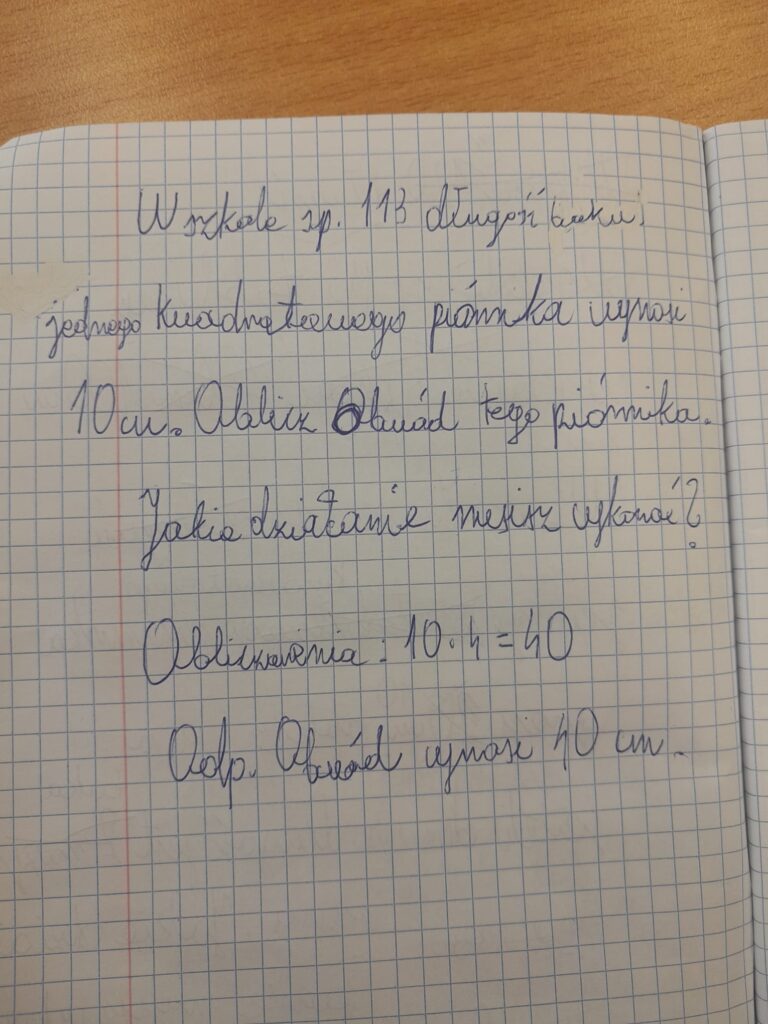 W szkole sp. 113 długość boku
jednego kwadratowego piórnika wynosi
10 cm. Oblicz Obwód tego piórnika.
Jakie działanie musisz wykonać?
Obliczenia: 10 · 4 = 40
Odp. Obwód wynosi 40 cm.